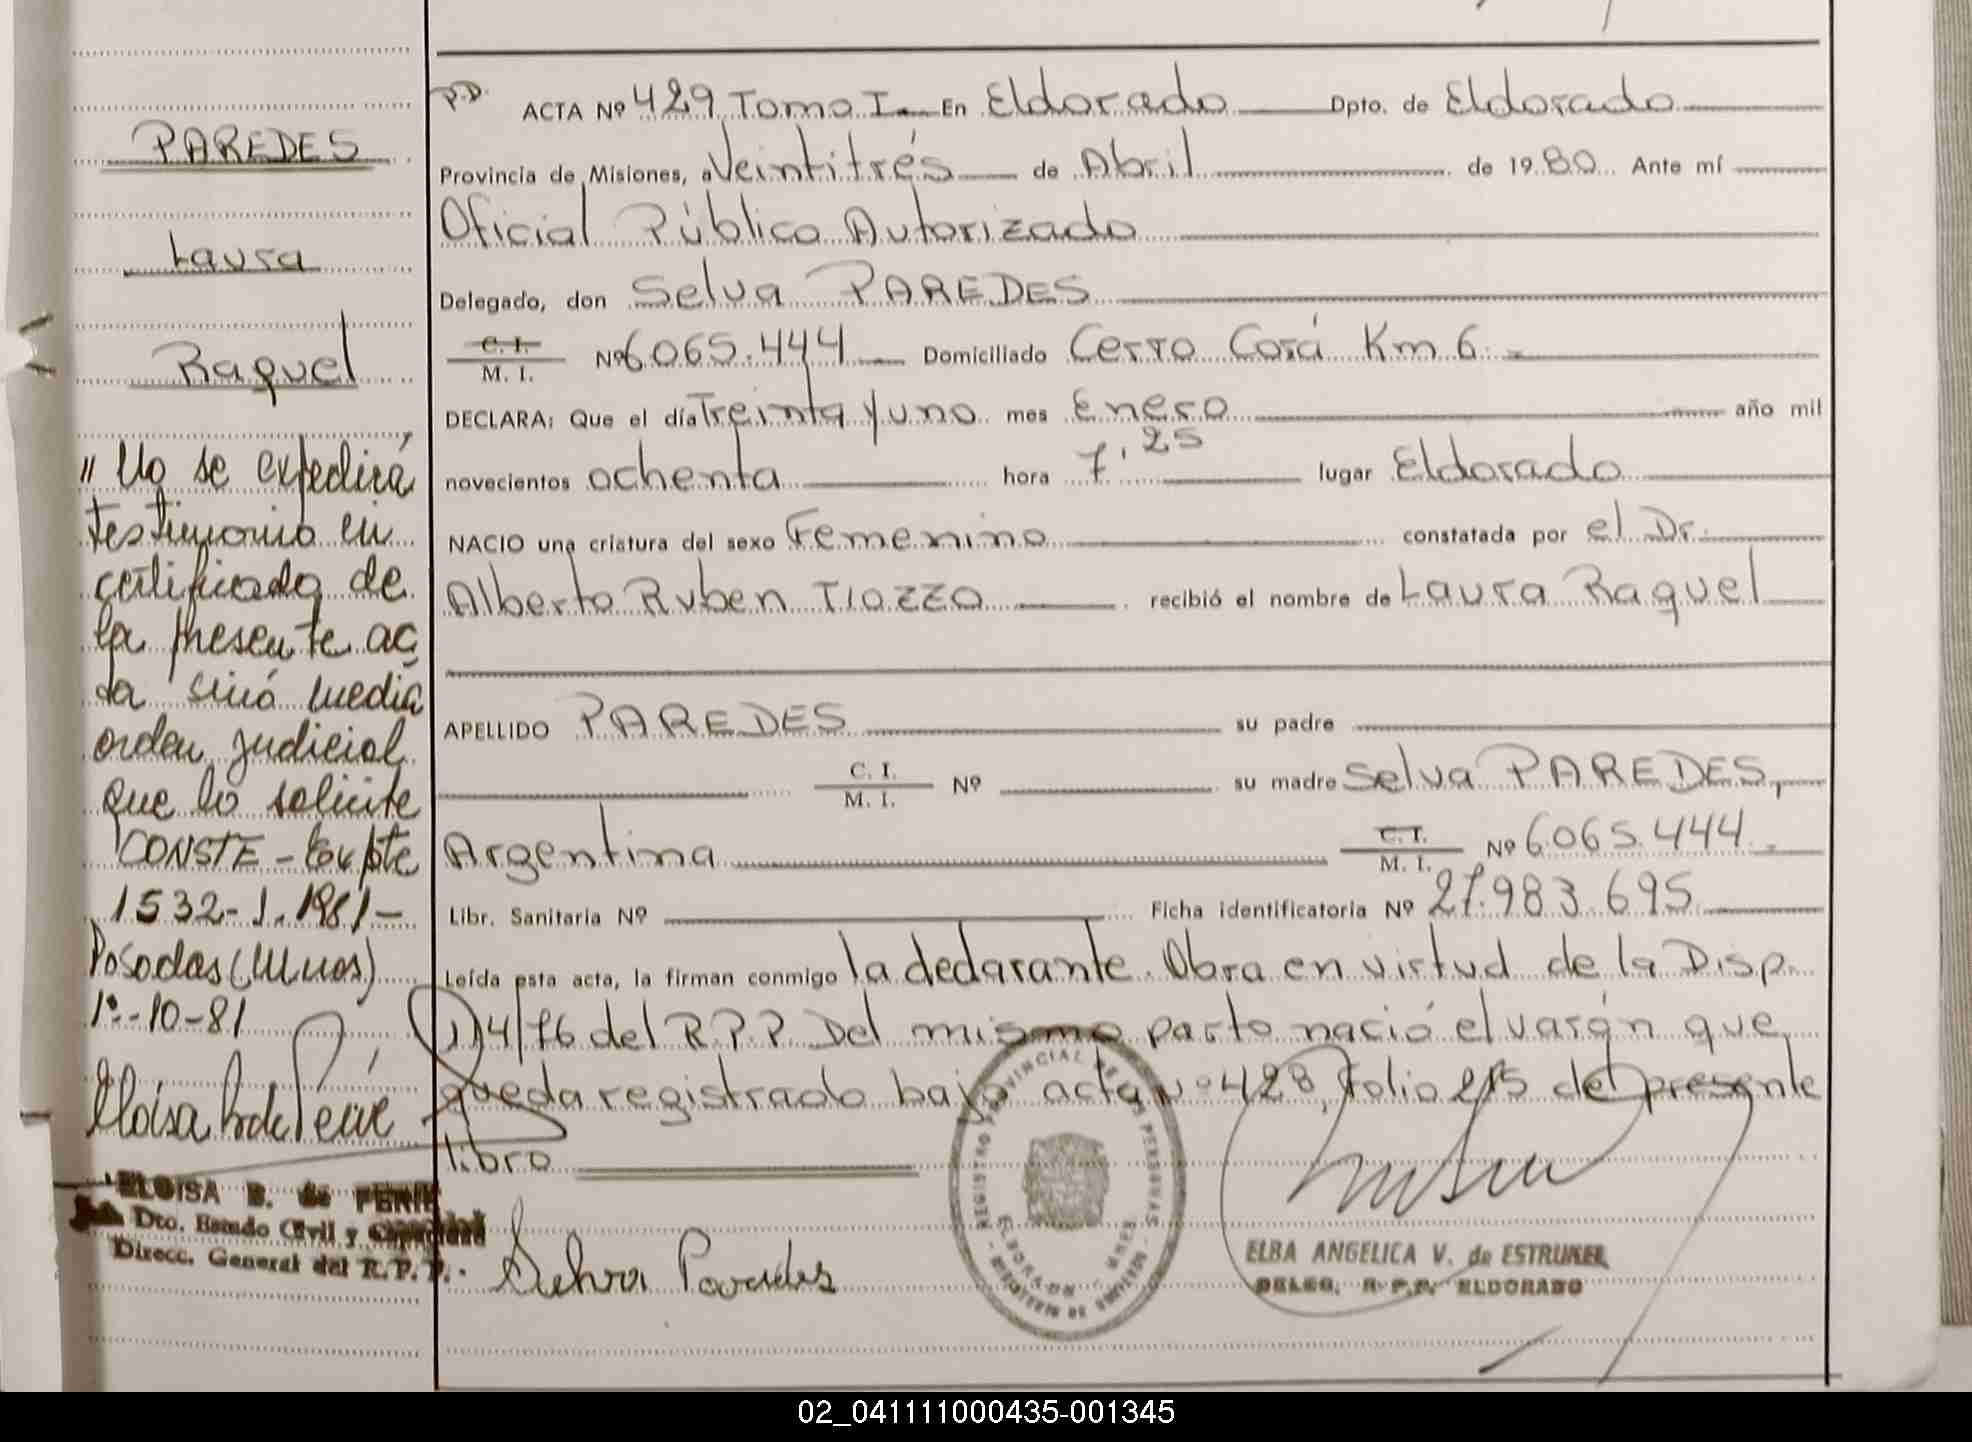 PAREDES
Laura
Raquel
"No se expedirá
testimonio ni
certificado de
la presente ac
ta sinó media
orden judicial
que lo solicite
CONSTE - Expte
1532-J.1981-
Posadas (Mnes)
1°-10-81
ELOISA B. de
Dto. Estado Civil y Capacidad
Direcc. General del R.P.P.
P.D. ACTA Nº 429 Tomo I En Eldorado Dpto. de Eldorado
Provincia de Misiones, a Veintitrés de Abril de 1980 Ante mí
Oficial Público Autorizado
Delegado, don Selva PAREDES
C. I.
M. I. Nº 6.065.444 Domiciliado Cerro Corá Km 6
DECLARA: Que el día Treinta y uno mes Enero año mil
novecientos ochenta hora 7,25 lugar Eldorado
NACIO una criatura del sexo Femenino constatada por el Dr.
Alberto Ruben TIOZZO recibió el nombre de Laura Raquel
APELLIDO PAREDES su padre
C. I.
M. I. Nº su madre Selva PAREDES,
Argentina C. I.
M. I. Nº 6.065.444
Libr. Sanitaria Nº Ficha identificatoria Nº 27.983.695
Leída esta acta, la firman conmigo la declarante. Obra en virtud de la Disp.
114/76 del R.P.P. Del mismo parto nació el varón que
queda registrado bajo acta nº 428, folio 215 del presente
libro
Selva Paredes
REGISTRO PROVINCIAL DE LAS PERSONAS
ELDORADO
ELBA ANGELICA V. de
DELEG. R.P.P. ELDORADO
02_041111000435-001345